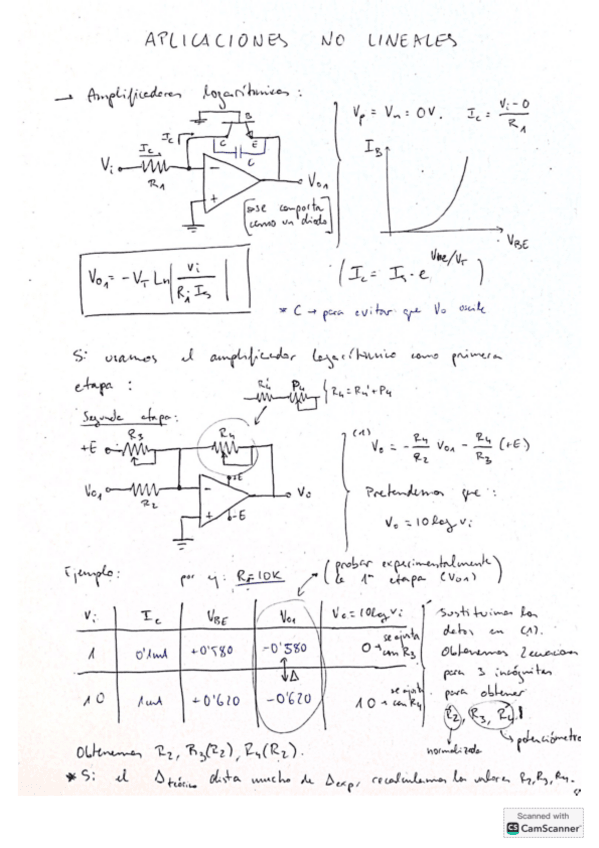 APLICACIONES NO LINEALES
→ Amplificadores logarítmicos:
Vp = Vn = 0V. Ic = Vi-0 / R1
B
Ic
C E
C
Ic
Vi
R1
-
+
Vo1
[⇒ se comporta como un diodo]
IB
VBE
Vo1 = -VT Ln | Vi / R1 Is |
(Ic = Is · e^VBE/VT)
* C → para evitar que Vo oscile
Si usamos el amplificador logarítmico como primera
etapa:
R4' P4 { R4 = R4' + P4
Segunda etapa:
+E R3 R4
Vo1 R2
-
+
+E
-E
Vo
(1) Vo = - R4/R2 Vo1 - R4/R3 (+E)
Pretendemos que:
Vo = 10 log Vi
Ejemplo: por ej: R=10K (probar experimentalmente la 1ª etapa (Vo1))
Vi | Ic | VBE | Vo1 | Vo=10log Vi
1 | 0'1mA | +0'580 | -0'580 | 0 → se ajusta con R3
Δ
10 | 1mA | +0'620 | -0'620 | 10 → se ajusta con R4
Sustituimos los
datos en (1).
Obtenemos 2 ecuaciones
para 3 incógnitas
para obtener
R2, R3, R4!
normalizada
potenciómetro
Obtenemos R2, R3(R2), R4(R2).
* Si el Δteórico dista mucho de Δexp. recalculamos los valores R2, R3, R4.
Scanned with
CS CamScanner